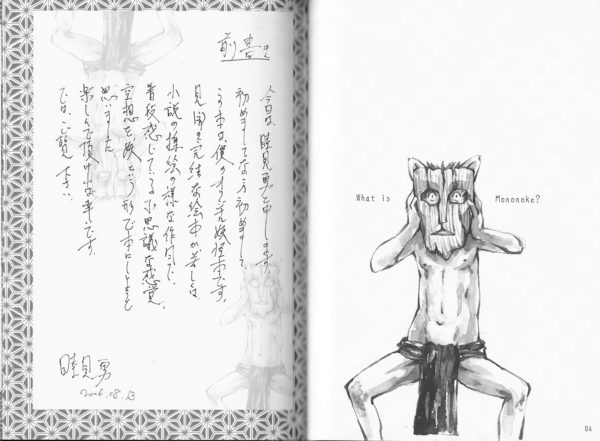 前書き
今日は、睦見勇と申します。
初めましてな方初めまして、
この本は、僕のオリジナル妖怪本です。
見開き完結な絵本か若しくは
小説の挿絵の様な作風で、
普段感じている不思議な感覚、
空想を、妖という形で本にしようと
思いました。
楽しんで頂ければ幸いです。
では、ご覧下さい。
睦見勇
2006.08.13
What is Mononoke?
04